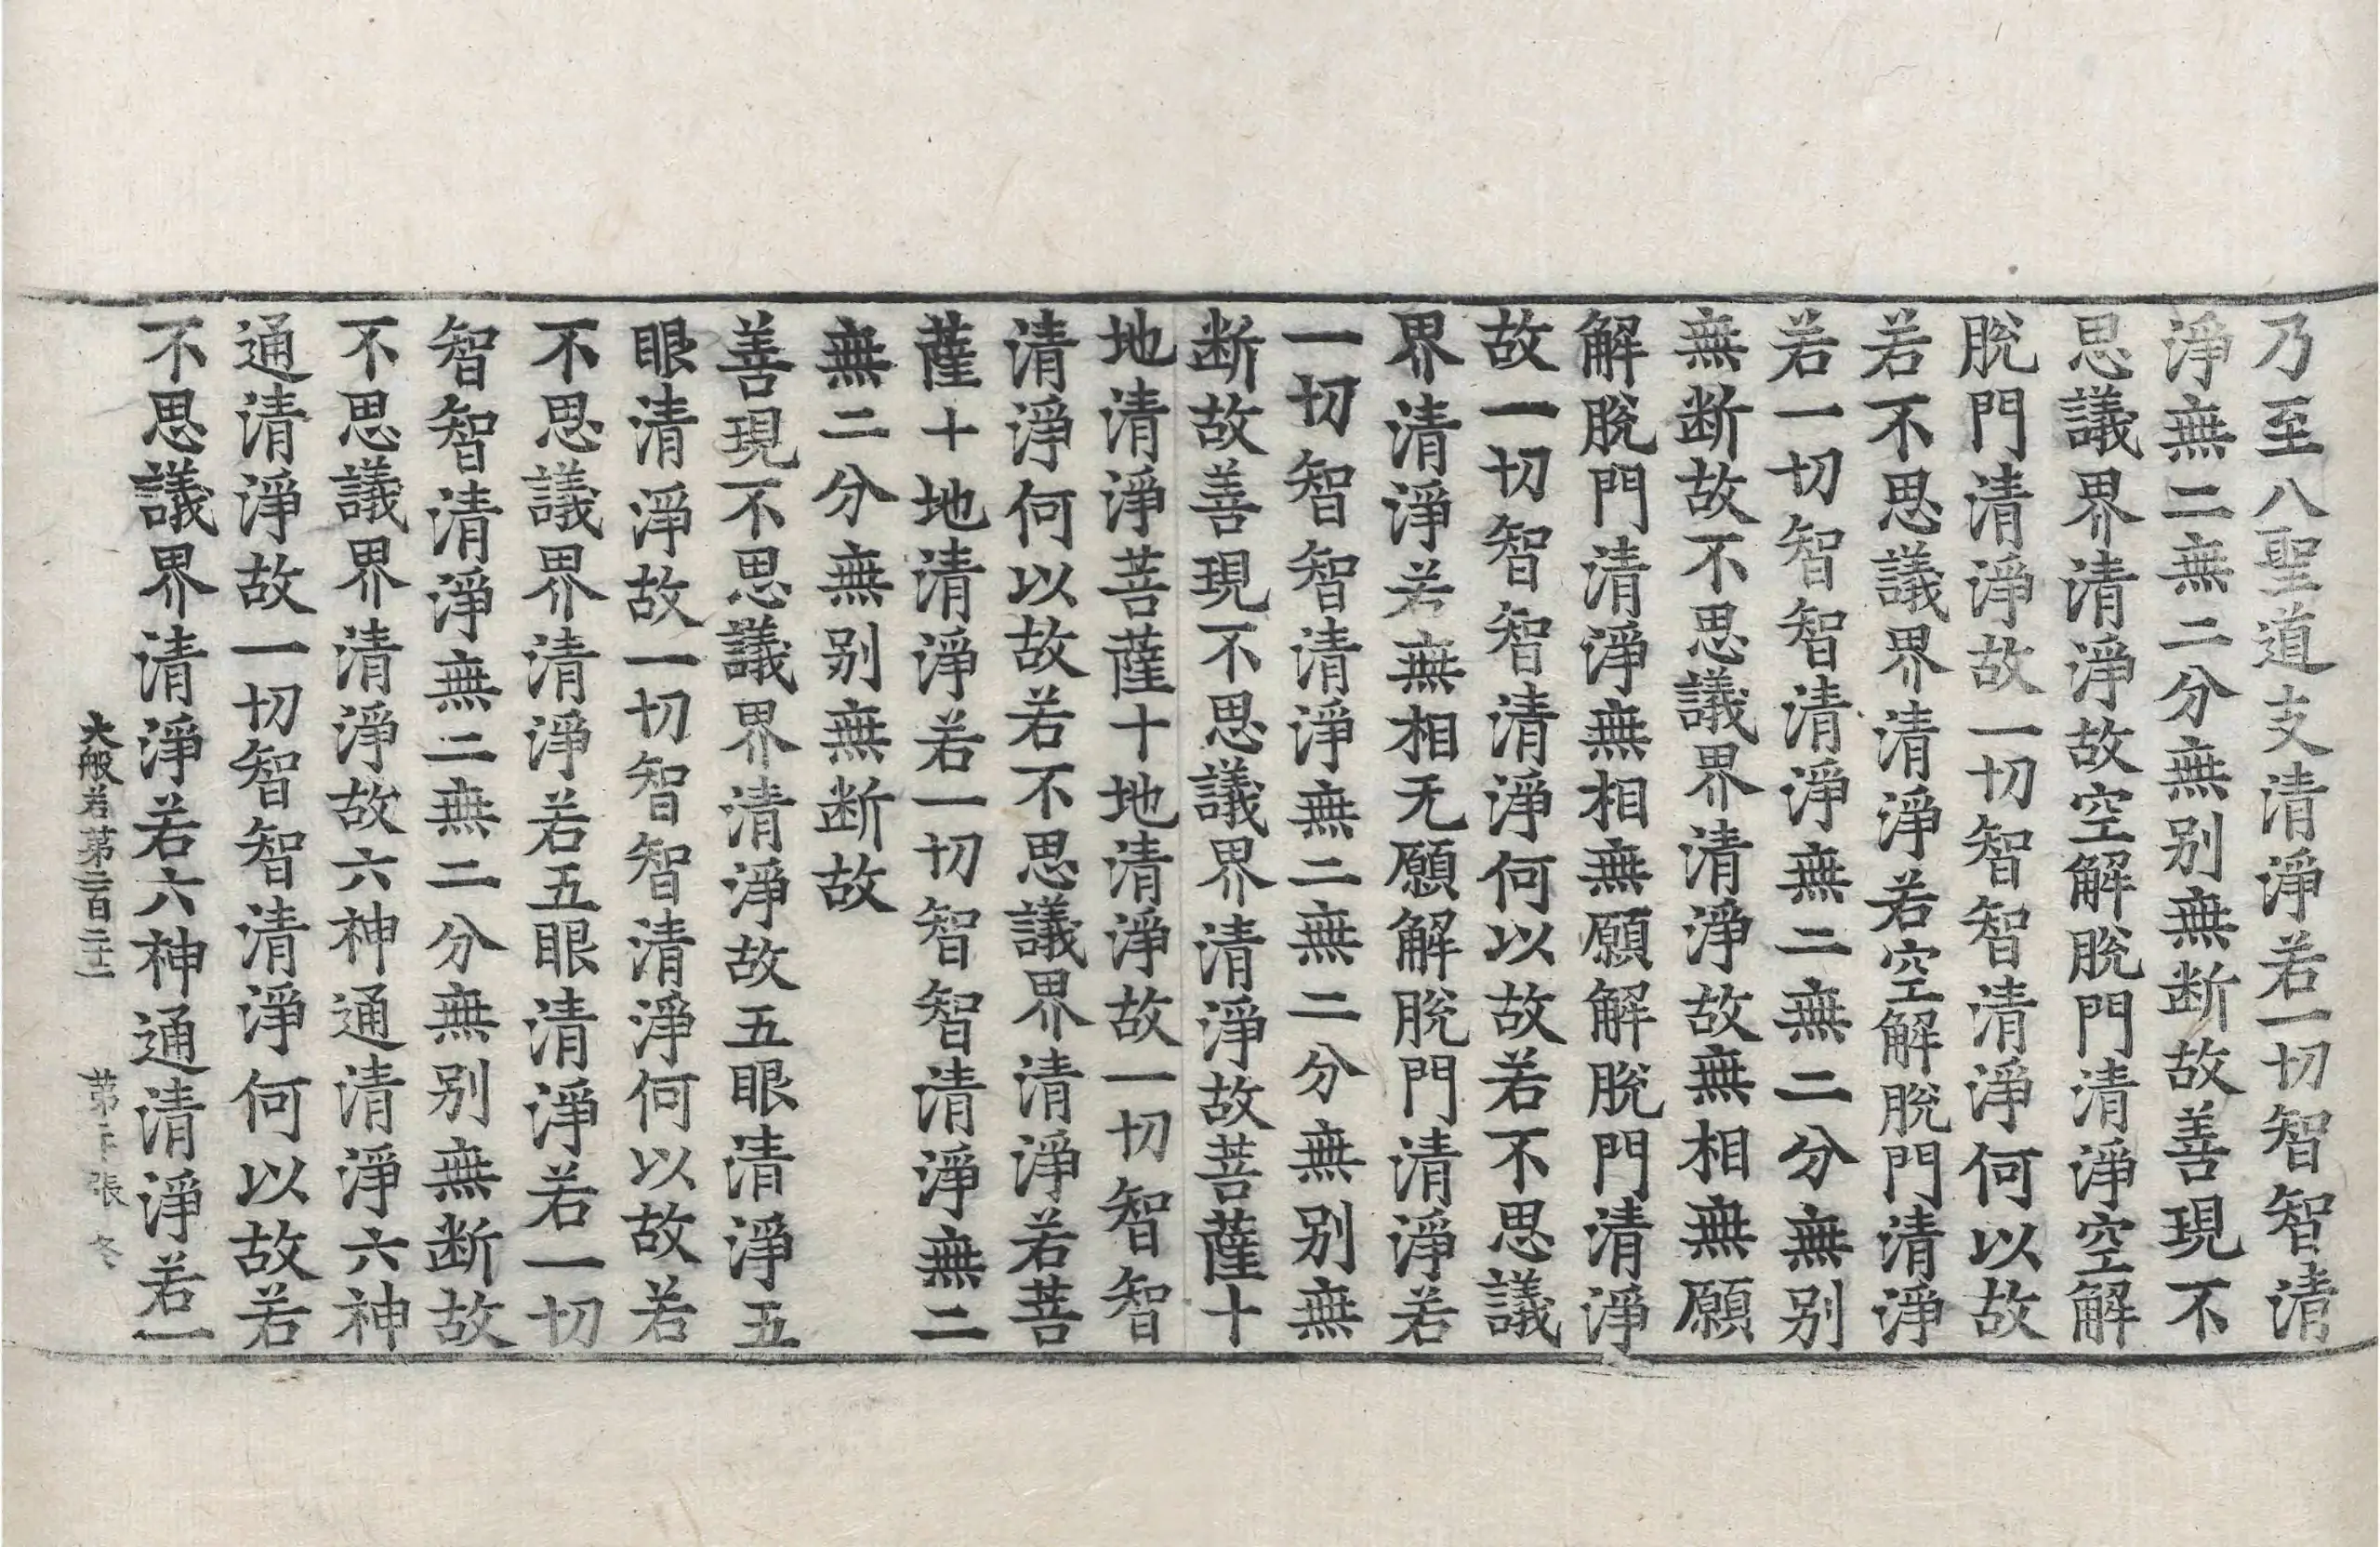 乃至八聖道支清淨若一切智智清
淨無二無二分無别無断故善現不
思議界清淨故空解脫門清淨空解
脫門清淨故一切智智清淨何以故
若不思議界清淨若空解脫門清淨
若一切智智清淨無二無二分無别
無断故不思議界清淨故無相無願
解脫門清淨無相無願解脫門清淨
故一切智智清淨何以故若不思議
界清淨若無相无願解脫門清淨若
一切智智清淨無二無二分無别無
断故善現不思議界清淨故菩薩十
地清淨菩薩十地清淨故一切智智
清淨何以故若不思議界清淨若菩
薩十地清淨若一切智智清淨無二
無二分無别無断故
善現不思議界清淨故五眼清淨五
眼清淨故一切智智清淨何以故若
不思議界清淨若五眼清淨若一切
智智清淨無二無二分無别無断故
不思議界清淨故六神通清淨六神
通清淨故一切智智清淨何以故若
不思議界清淨若六神通清淨若一
大般若第二百 第 張 冬